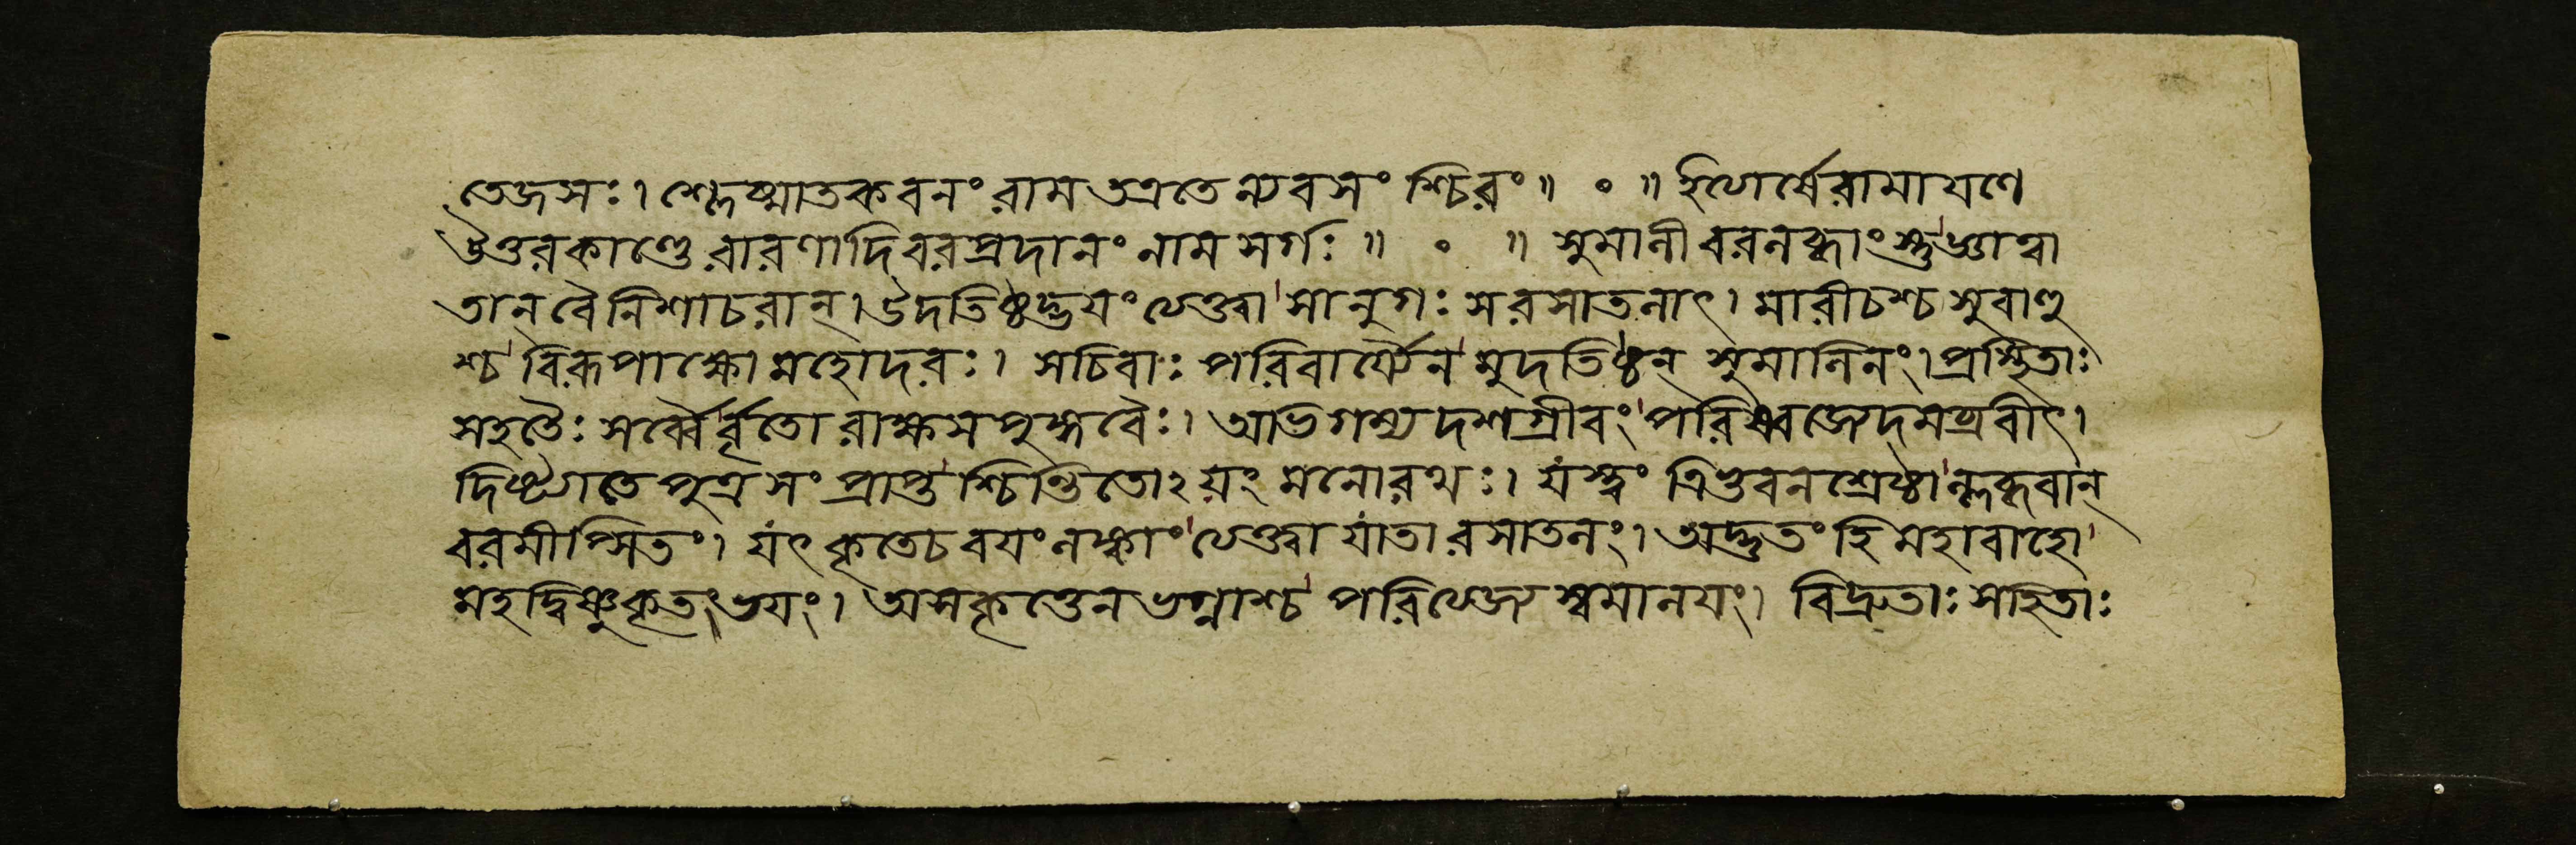 তেজসঃ। শ্লেষ্মাতকবনং রাম তত্রতে ন্যবসংশ্চিরং॥ ॰ ॥ ইত্যার্ষে রামায়ণে
উত্তরকাণ্ডে রাবণাদিবরপ্রদানং নাম সর্গঃ॥ ॰ ॥ সুমালী বরলব্ধাংস্তু জ্ঞাত্বা
তান্ বৈ নিশাচরান্। উদতিষ্ঠদ্ভয়ং ত্যক্ত্বা সানুগঃ স রসাতলাৎ। মারীচশ্চ সুবাহু
শ্চ বিরূপাক্ষো মহোদরঃ। সচিবাঃ পরিবার্য্যৈনমুদতিষ্ঠন্ সুমালিনং। প্রস্থিতাঃ
সহতৈঃ সর্ব্বৈর্বৃতো রাক্ষসপুঙ্গবৈঃ। অভিগম্য দশগ্রীবং পরিষ্বজ্যেদমব্রবীৎ।
দিষ্ট্যা তে পুত্র সংপ্রাপ্তশ্চিন্তিতোঽয়ং মনোরথঃ। যস্ত্বং ত্রিভুবনশ্রেষ্ঠাল্লব্ধবান্
বরমীপ্সিতং। যৎকৃতে চ বয়ং লঙ্কাং ত্যক্ত্বা যাতা রসাতলং। অদ্ভুতং হি মহাবাহো
মহদ্বিষ্ণুকৃতং ভয়ং। অসকৃত্তেন ভগ্নাশ্চ পরিত্যজ্য স্বমালয়ং। বিদ্রুতাঃ সহিতাঃ